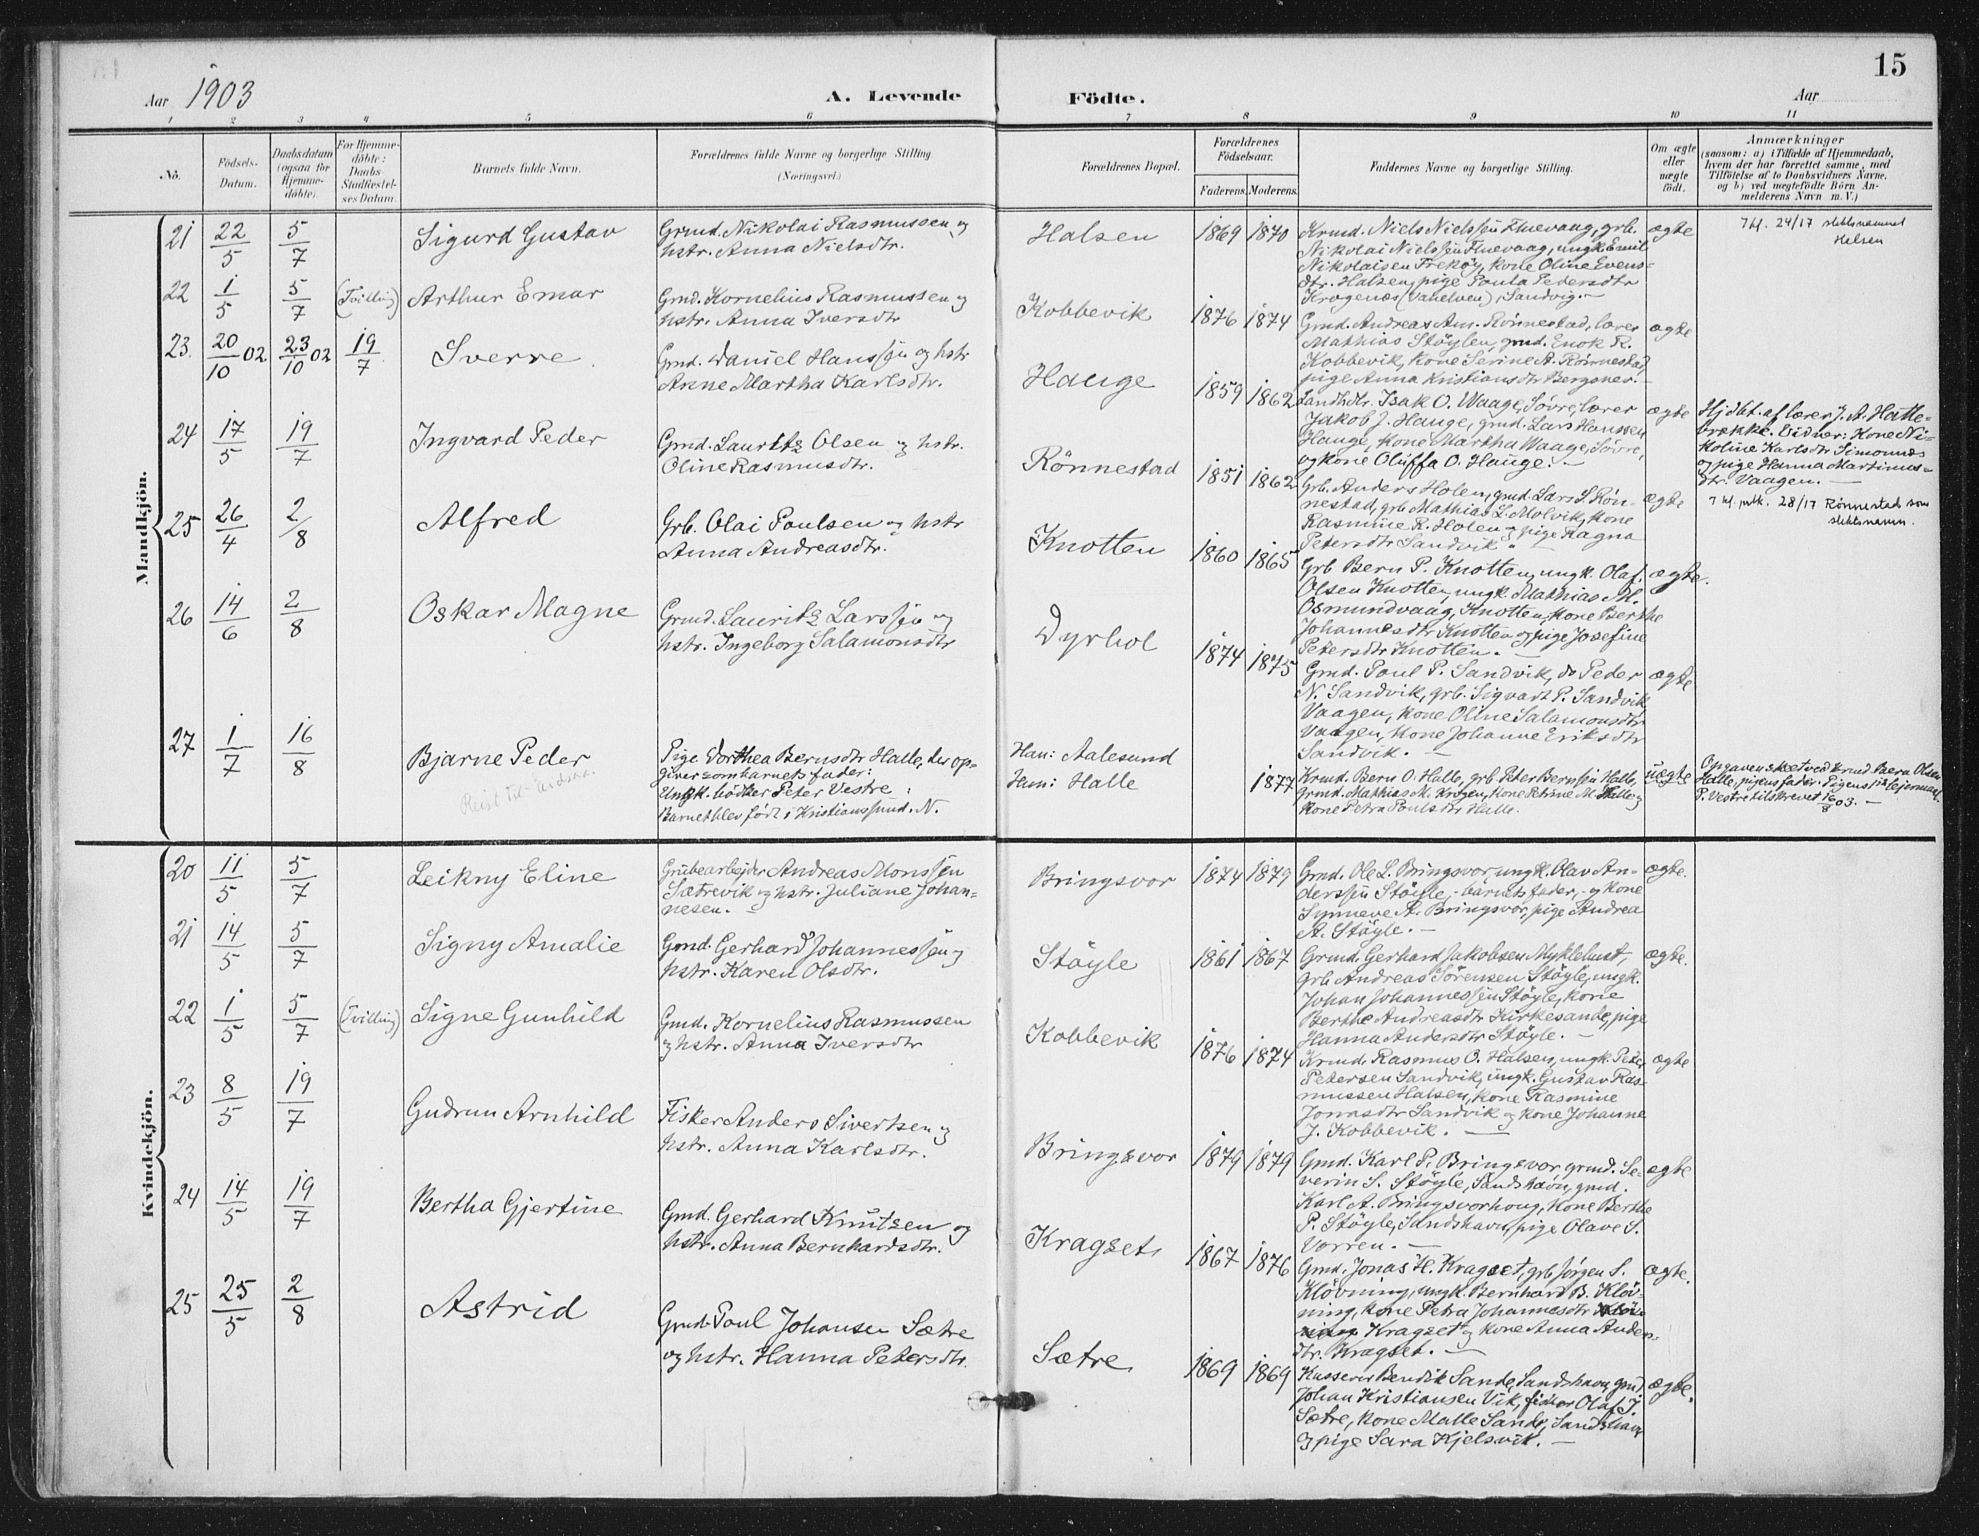 15
Aar 1903
A. Levende Födte.
Aar
1 2 3 4 5 6 7 8 9 10 11
No.
Födsels-Datum.
Daabsdatum (ogsaa for Hjemme-döbte).
For Hjemme-döbte: Daabs-Stadfæstel-ses Datum.
Barnets fulde Navn.
Forældrenes fulde Navne og borgerlige Stilling.
(Næringsvei.)
Forældrenes Bopæl.
Forældrenes Födselsaar.
Faderens. Moderens.
Faddernes Navne og borgerlige Stilling.
Om ægte eller uægte født.
Anmærkninger
(saasom: a) i Tilfælde af Hjemmedaab, hvem der har forrettet samme, med Tilföielse af to Daabsvidners Navne, og b) ved uægtefödte Börn An-melderens Navn m. V.)
Mandkjön.
21 22/5 5/7 Sigurd Gustav
Grmd. Nikolai Rasmussen og
hstr. Anna Nielsdtr.
Halsen 1869 1870
Krmd. Niels Nielssøn Fluevaag, grb.
Nikolai Nielssøn Fluevaag, ungk. Emil
Nikolaisen Frekøy, kone Oline Evens-
dtr. Halsen, pige Paula Pedersdtr
Krogenæs (Vanelven), Sandvig. -
ægte
24/17 slektsnavnet
Halsen
22 1/5 5/7 (Tvilling) Arthur Emar
Gmd. Kornelius Rasmussen og
hstr. Anna Iversdtr
Kobbevik 1876 1874
Gmd. Andreas Am. Rønnestad, lærer
Mathias Støylen, gmd. Enok R.
Kobbevik, kone Serine A. Rønnestad,
pige Anna Kristiansdtr Bergsnev. -
ægte
23. 20/10 02 23/10 02 19/7 Sverre.
Gmd. Daniel Hanssøn og hstr
Anne Martha Karlsdtr.
Hauge 1859 1862
Landhdl. Isak O. Waage, Søvre, lærer
Jakob J. Hauge, gmd. Lars Hanssen
Hauge, kone Martha Waage, Søvre,
og kone Oluffa O. Hauge. -
ægte
Hjdbt. af lærer J. A. Hatle-
brække. Vidner: Kone Ni-
koline Karlsdtr Simonnæs
og pige Hanna Martinus-
dtr. Vaagen. -
24 17/5 19/7 Ingvard Peder
Gmd. Lauritz Olsen og hstr.
Oline Rasmusdtr.
Rönnestad 1851 1862
Grb. Anders Holen, gmd. Lars L. Røn-
nestad, grb. Mathias L. Molvik, kone
Rasmine R. Holen og pige Ragna
Petersdtr Sandvik.
ægte
28/17 Rönnestad som
slektsnavn.
25 26/4 2/8 Alfred
Grb. Olai Paulsen og hstr
Anna Andreasdtr.
Knotten 1860 1865
Grb Bern P. Knotten, ungk. Olaf.
Olsen Knotten, ungk. Mathias M.
Osmundvaag, Knotten, kone Berthe
Johannesdtr Knotten og pige Josefine
Petersdtr Knotten. -
ægte.
26 14/6 2/8 Oskar Magne
Gmd. Lauritz Larssøn og
hstr. Ingeborg Salamonsdtr
Dyrhol 1874 1875
Gmd. Paul P. Sandvik, do Peder
N. Sandvik, grb. Sigvart P. Sandvik
Vaagen, kone Oline Salamonsdtr
Vaagen, kone Johanne Eriksdtr
Sandvik. -
ægte
27 1/7 16/8 Bjarne Peder
Pige Dorthea Bernsdtr Halle, der op-
giver som barnets fader:
Ungk. bødker Peter Vestre.
Barnet blev født i Kristianssund. N.
Han: Aalesund
Hun: Halle
1877
Krmd. Bern O. Halle, grb Peter Bernssøn Halle,
Grmd. Mathias M. Krogen, kone Petrine M. Halle og
kone Petra Paulsdtr Halle.
uægte
Opgaven skeet ved Krmd Bern Olsen
Halle, pigens fader. Pigens
P. Vestre tilskrevet 16/8 03. -
Kvindekjön.
20 11/5 5/7 Leikny Eline
Grubearbejder Andreas Monssøn
Sætrevik og hstr. Juliane Johan-
nesen. -
Bringsvor 1874 1879
Gmd. Ole L. Bringsvor, ungk. Olav An-
derssøn Støyle, - barnets fader, - og kone
Synneve A. Bringsvor, pige Andrea
A. Støyle. -
ægte.
21 14/5 5/7 Signy Amalie
Gmd. Gerhard Johannessøn og
hstr. Karen Olsdtr.
Støyle 1861 1867
Grmd. Gerhard Jakobsen Myklebust,
grb Andreas Sørensen Støyle, ungk.
Johan Johannessøn Støyle, kone
Berthe Andreasdtr Kirkesande, pige
Hanna Andersdtr Støyle. -
ægte.
22 1/5 5/7 (Tvilling) Signe Gunhild
Gmd. Kornelius Rasmussen
og hstr. Anna Iversdtr
Kobbevik 1876 1874
Krmd. Rasmus O. Halsen, ungk. Peter
Petersen Sandvik, ungk. Gustav Ras-
mussen Halsen, kone Rasmine
Jonasdtr Sandvik og kone Johanne
J. Kobbevik. -
ægte
23 8/5 19/7 Gudrun Arnhild
Fisker Anders Sivertsen og
hstr. Anna Karlsdtr.
Bringsvor 1879 1879
Gmd. Karl P. Bringsvor, grmd. Se-
verin S. Støyle, Sandshavn, gmd.
Karl A. Bringsvorhoug, kone Berthe
P. Støyle, Sandshavn, pige Olave S.
Vorren. -
ægte
24 14/5 19/7 Bertha Gjertine
Gmd. Gerhard Knutsen og
hstr. Anna Bernhardsdtr.
Kragset 1867 1876
Gmd. Jonas H. Kragset, grb. Jørgen S.
Kløvning, ungk. Bernhard B. Kløv-
ning, kone Petra Johannesdtr
Kragset og kone Anna Anders-
dtr. Kragset. -
ægte.
25 25/5 2/8 Astrid
Gmd. Paul Johansen Sætre
og hstr. Hanna Petersdtr.
Sætre 1869 1869
Kasserer Bendik Sande, Sandshavn, gmd
Johan Kristiansen Vik, fisker Olaf J.
Sætre, kone Malle Sande, Sandshavn
og pige Sara Kjelsvik. -
ægte.